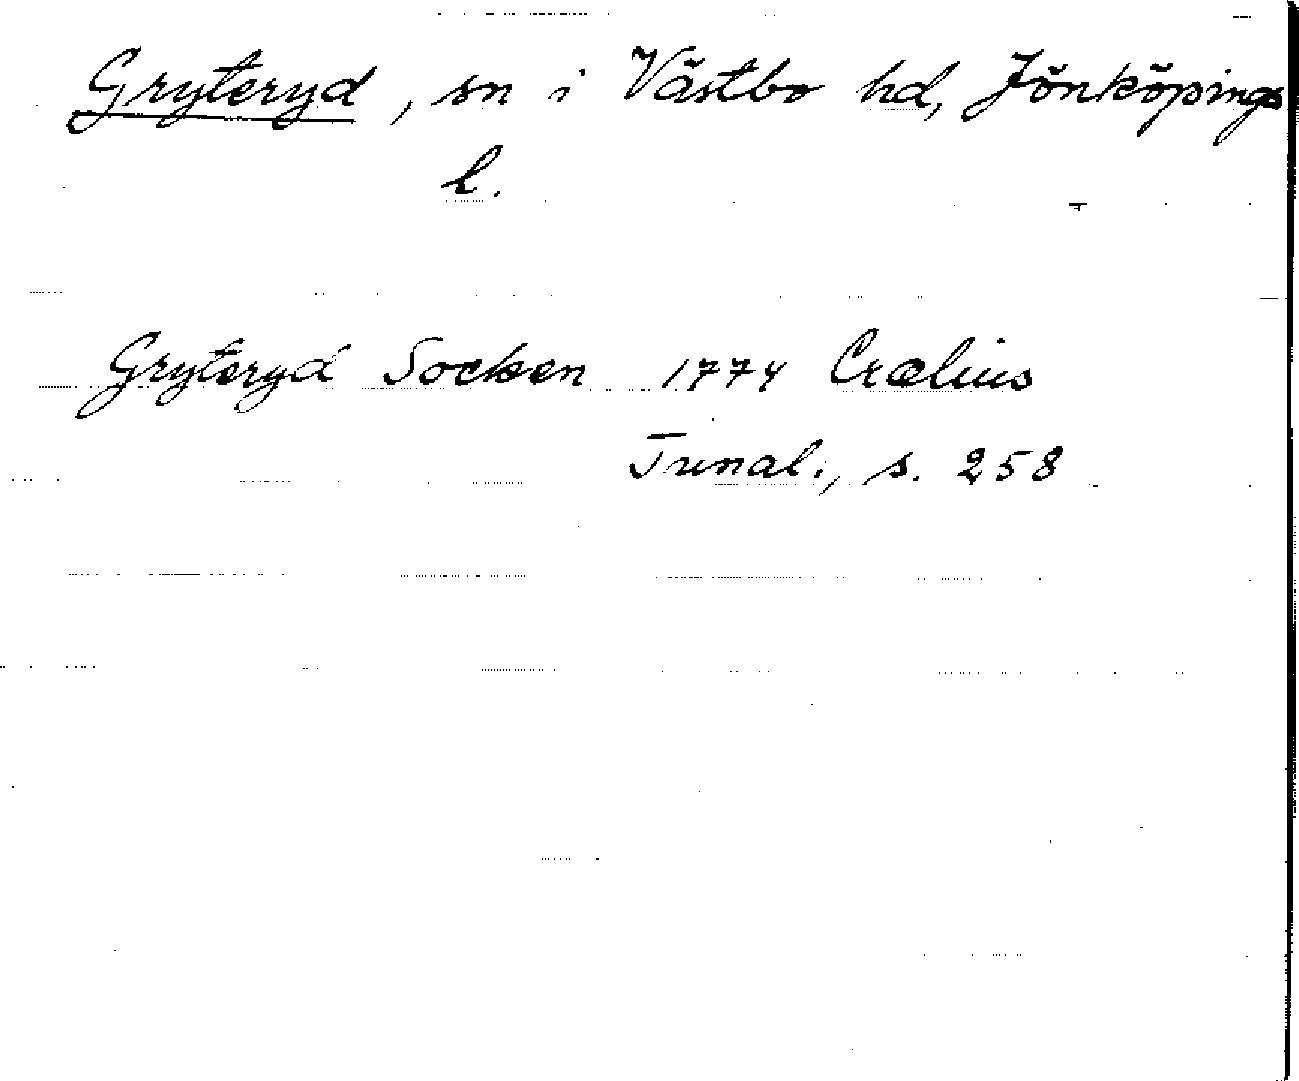 Gryteryd, sn i Västbo hd, Jönköpings
l.
Gryteryd Socken 1774 Crælius
Tunal., s. 258